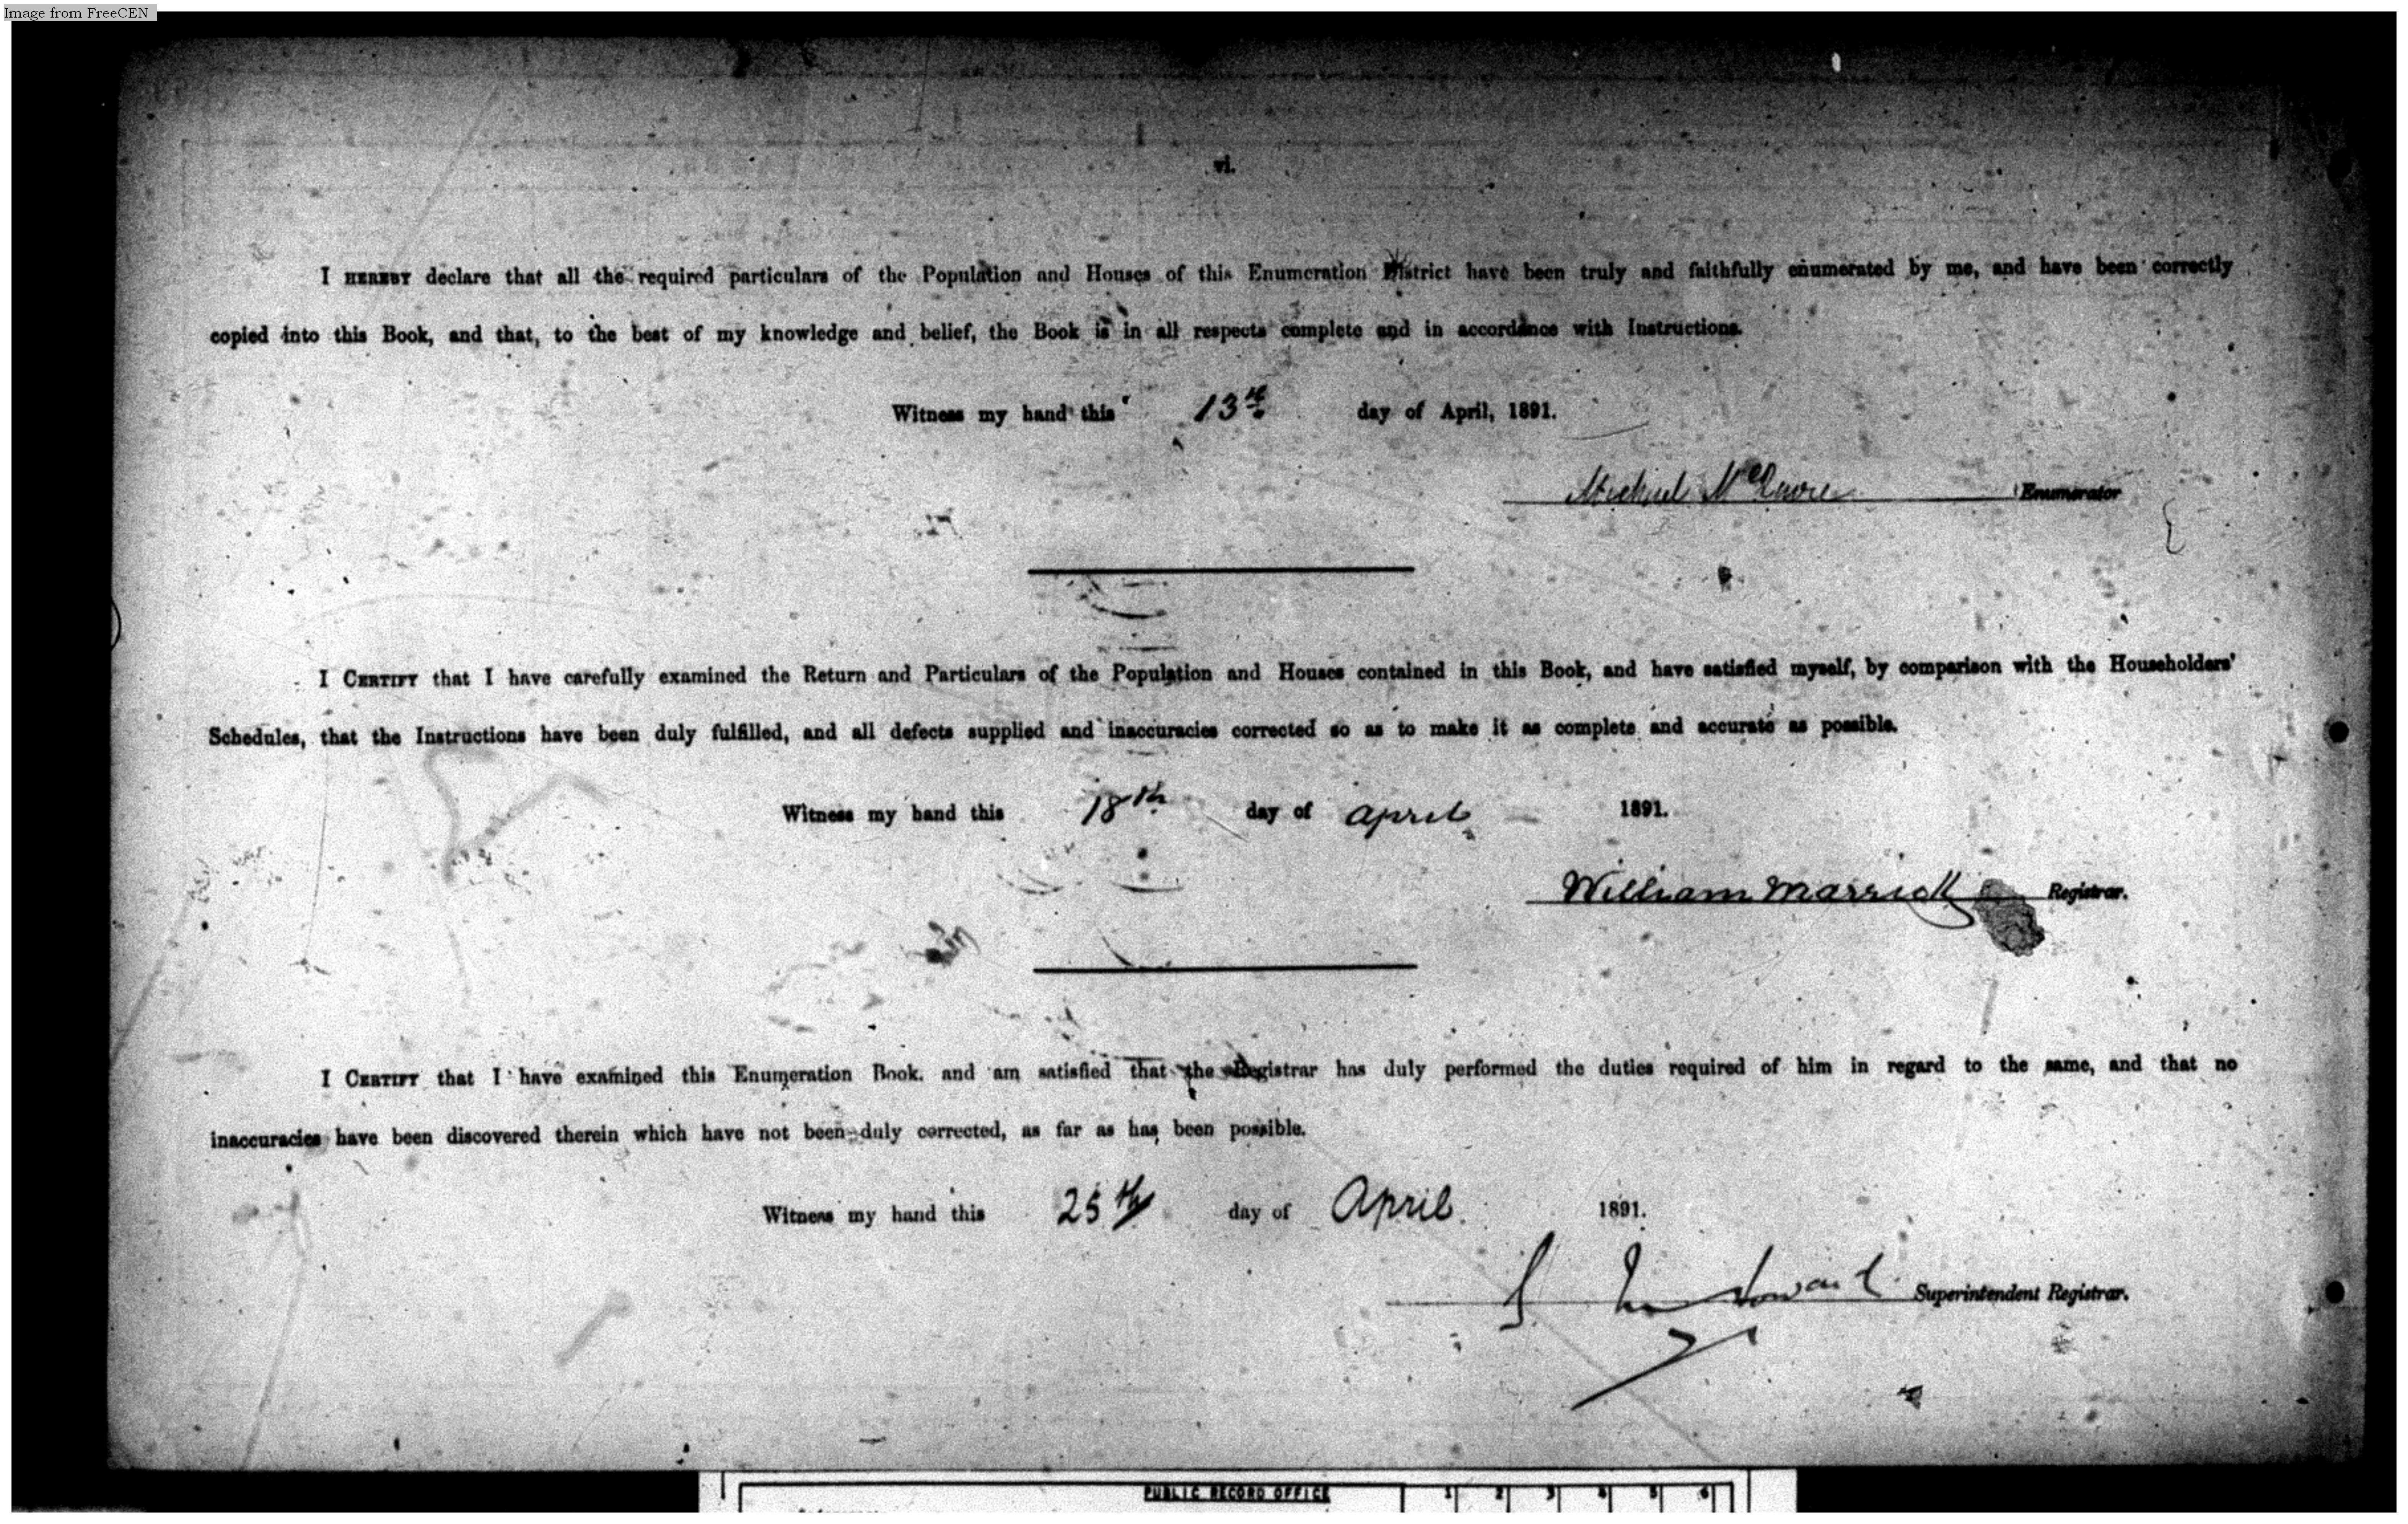 Image from FreeCEN
vi.
I HEREBY declare that all the required particulars of the Population and Houses of this Enumeration District have been truly and faithfully enumerated by me, and have been correctly
copied into this Book, and that, to the best of my knowledge and belief, the Book is in all respects complete and in accordance with Instructions.
Witness my hand this 13th day of April, 1891.
Michael Enumerator
I CERTIFY that I have carefully examined the Return and Particulars of the Population and Houses contained in this Book, and have satisfied myself, by comparison with the Householders'
Schedules, that the Instructions have been duly fulfilled, and all defects supplied and inaccuracies corrected so as to make it as complete and accurate as possible.
Witness my hand this 18th day of April 1891.
William Marrick Registrar.
I CERTIFY that I have examined this Enumeration Book. and am satisfied that the Registrar has duly performed the duties required of him in regard to the same, and that no
inaccuracies have been discovered therein which have not been duly corrected, as far as has been possible.
Witness my hand this 25th day of April 1891.
Superintendent Registrar.
PUBLIC RECORD OFFICE 1 2 3 4 5 6